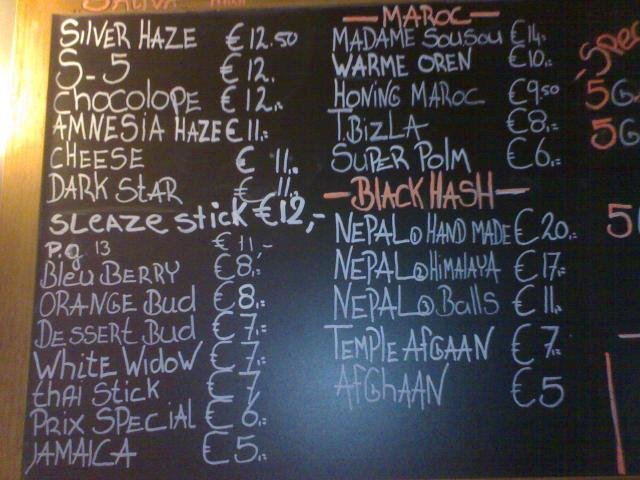 SILVER HAZE €12.50
S-5 €12.
CHOCOLOPE €12,=
AMNESIA HAZE €11,=
CHEESE € 11,=
DARK STAR € 11,=
SLEAZE STICK €12,-
P.g 13 €11,-
BLeu BERRY €8,=
ORANGE Bud €8,=
DESSERT Bud €7,=
White Widow €7,=
thai Stick €7
PRIX SPECIAL €6,=
JAMAICA €5,=
— MAROC —
MADAME SouSou €14,-
WARME OREN €10,-
HONING MAROC €9,50
T.BizLA €8,=
SuPER PoLM €6,=
— BLACK HASH —
NEPAL ① HAND MADE €20,=
NEPAL ② HiMALAYA €17,=
NEPAL ③ Balls €11,=
TEMPLE AfGAAN €7,=
AfGhAAN €5
5G
5G
5